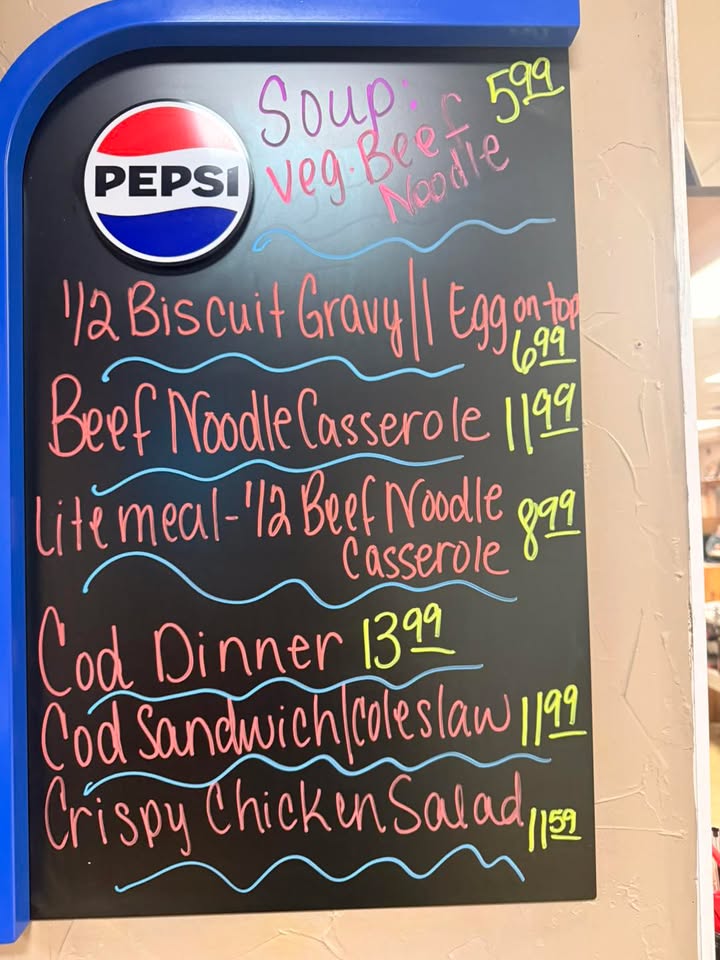 PEPSI
Soup: 5.99
Veg. Beef
Noodle
1/2 Biscuit Gravy/1 Egg on top
6.99
Beef Noodle Casserole 11.99
Lite meal - 1/2 Beef Noodle
Casserole 8.99
Cod Dinner 13.99
Cod Sandwich/Coleslaw 11.99
Crispy Chicken Salad 11.59